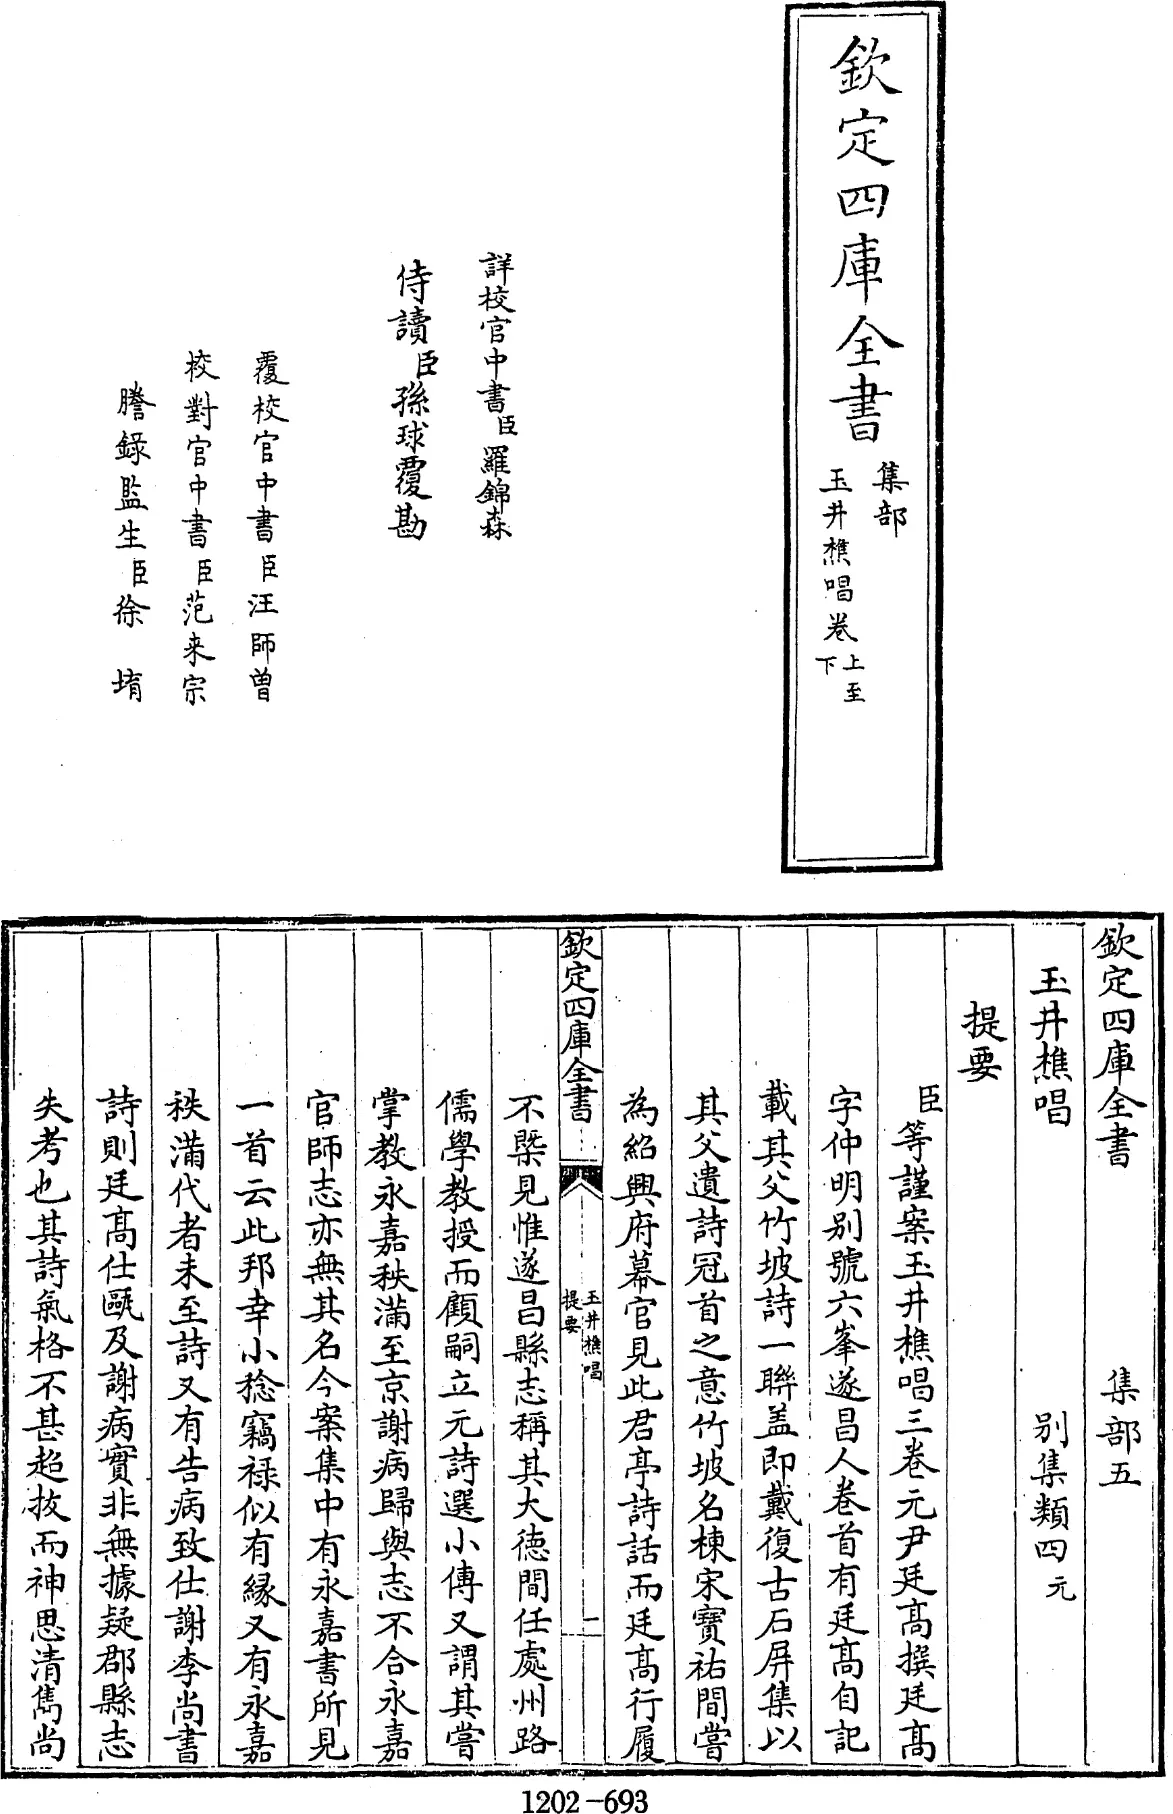 欽定四庫全書
集部
玉井樵唱卷上至
下
詳校官中書臣羅錦森
侍讀臣孫球覆勘
覆校官中書臣汪師曾
校對官中書臣范来宗
謄錄監生臣徐堉
欽定四庫全書 集部五
玉井樵唱 別集類四元
提要
臣等謹案玉井樵唱三巻元尹廷髙撰廷髙
字仲明别號六峯遂昌人巻首有廷髙自記
載其父竹坡詩一聯盖即戴復古石屏集以
其父遺詩冠首之意竹坡名棟宋寶祐間嘗
為紹興府幕官見此君亭詩話而廷髙行履
欽定四庫全書
玉井樵唱
提要
二
不槩見惟遂昌縣志稱其大德間任處州路
儒學教授而顧嗣立元詩選小傳又謂其嘗
掌教永嘉秩滿至京謝病歸與志不合永嘉
官師志亦無其名今案集中有永嘉書所見
一首云此邦幸小稔竊禄似有縁又有永嘉
秩滿代者未至詩又有告病致仕謝李尚書
詩則廷髙仕甌及謝病實非無據疑郡縣志
失考也其詩氣格不甚超拔而神思清雋尚
1202-693